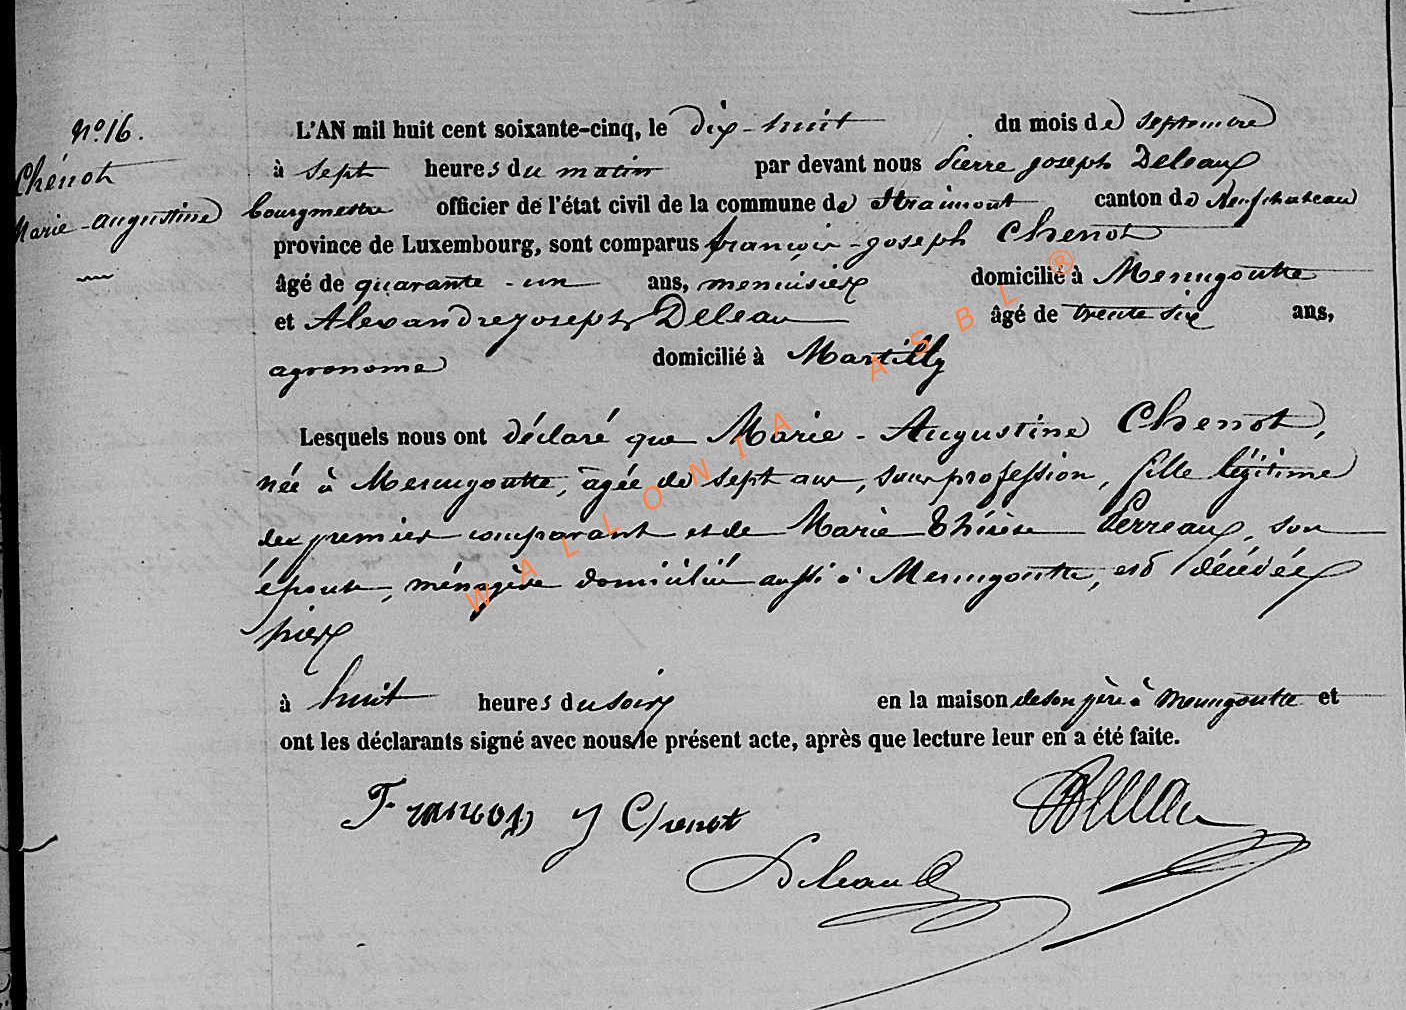 N° 16.
Chenot
Marie-Augustine
L'AN mil huit cent soixante-cinq, le dix-huit du mois de septembre
à sept heures du matin par devant nous Pierre Joseph Deleaux
bourgmestre officier de l'état civil de la commune de Straimont canton de Neufchateau
province de Luxembourg, sont comparus françois-joseph Chenot
âgé de quarante-un ans, menuisier domicilié à Menugoutte
et Alexandre joseph Deleau âgé de trente six ans,
agronome domicilié à Martilly
Lesquels nous ont déclaré que Marie-Augustine Chenot,
née à Menugoutte, âgée de sept ans, sans profession, fille légitime
du premier comparant et de Marie Thérèse Perreaux, son
épouse, ménagère domiciliée aussi à Menugoutte, est décédée
hier
à huit heures du soir en la maison de son père à Menugoutte et
ont les déclarants signé avec nous le présent acte, après que lecture leur en a été faite.
François J Chenot
Deleau
WALLONIA ASBL ®